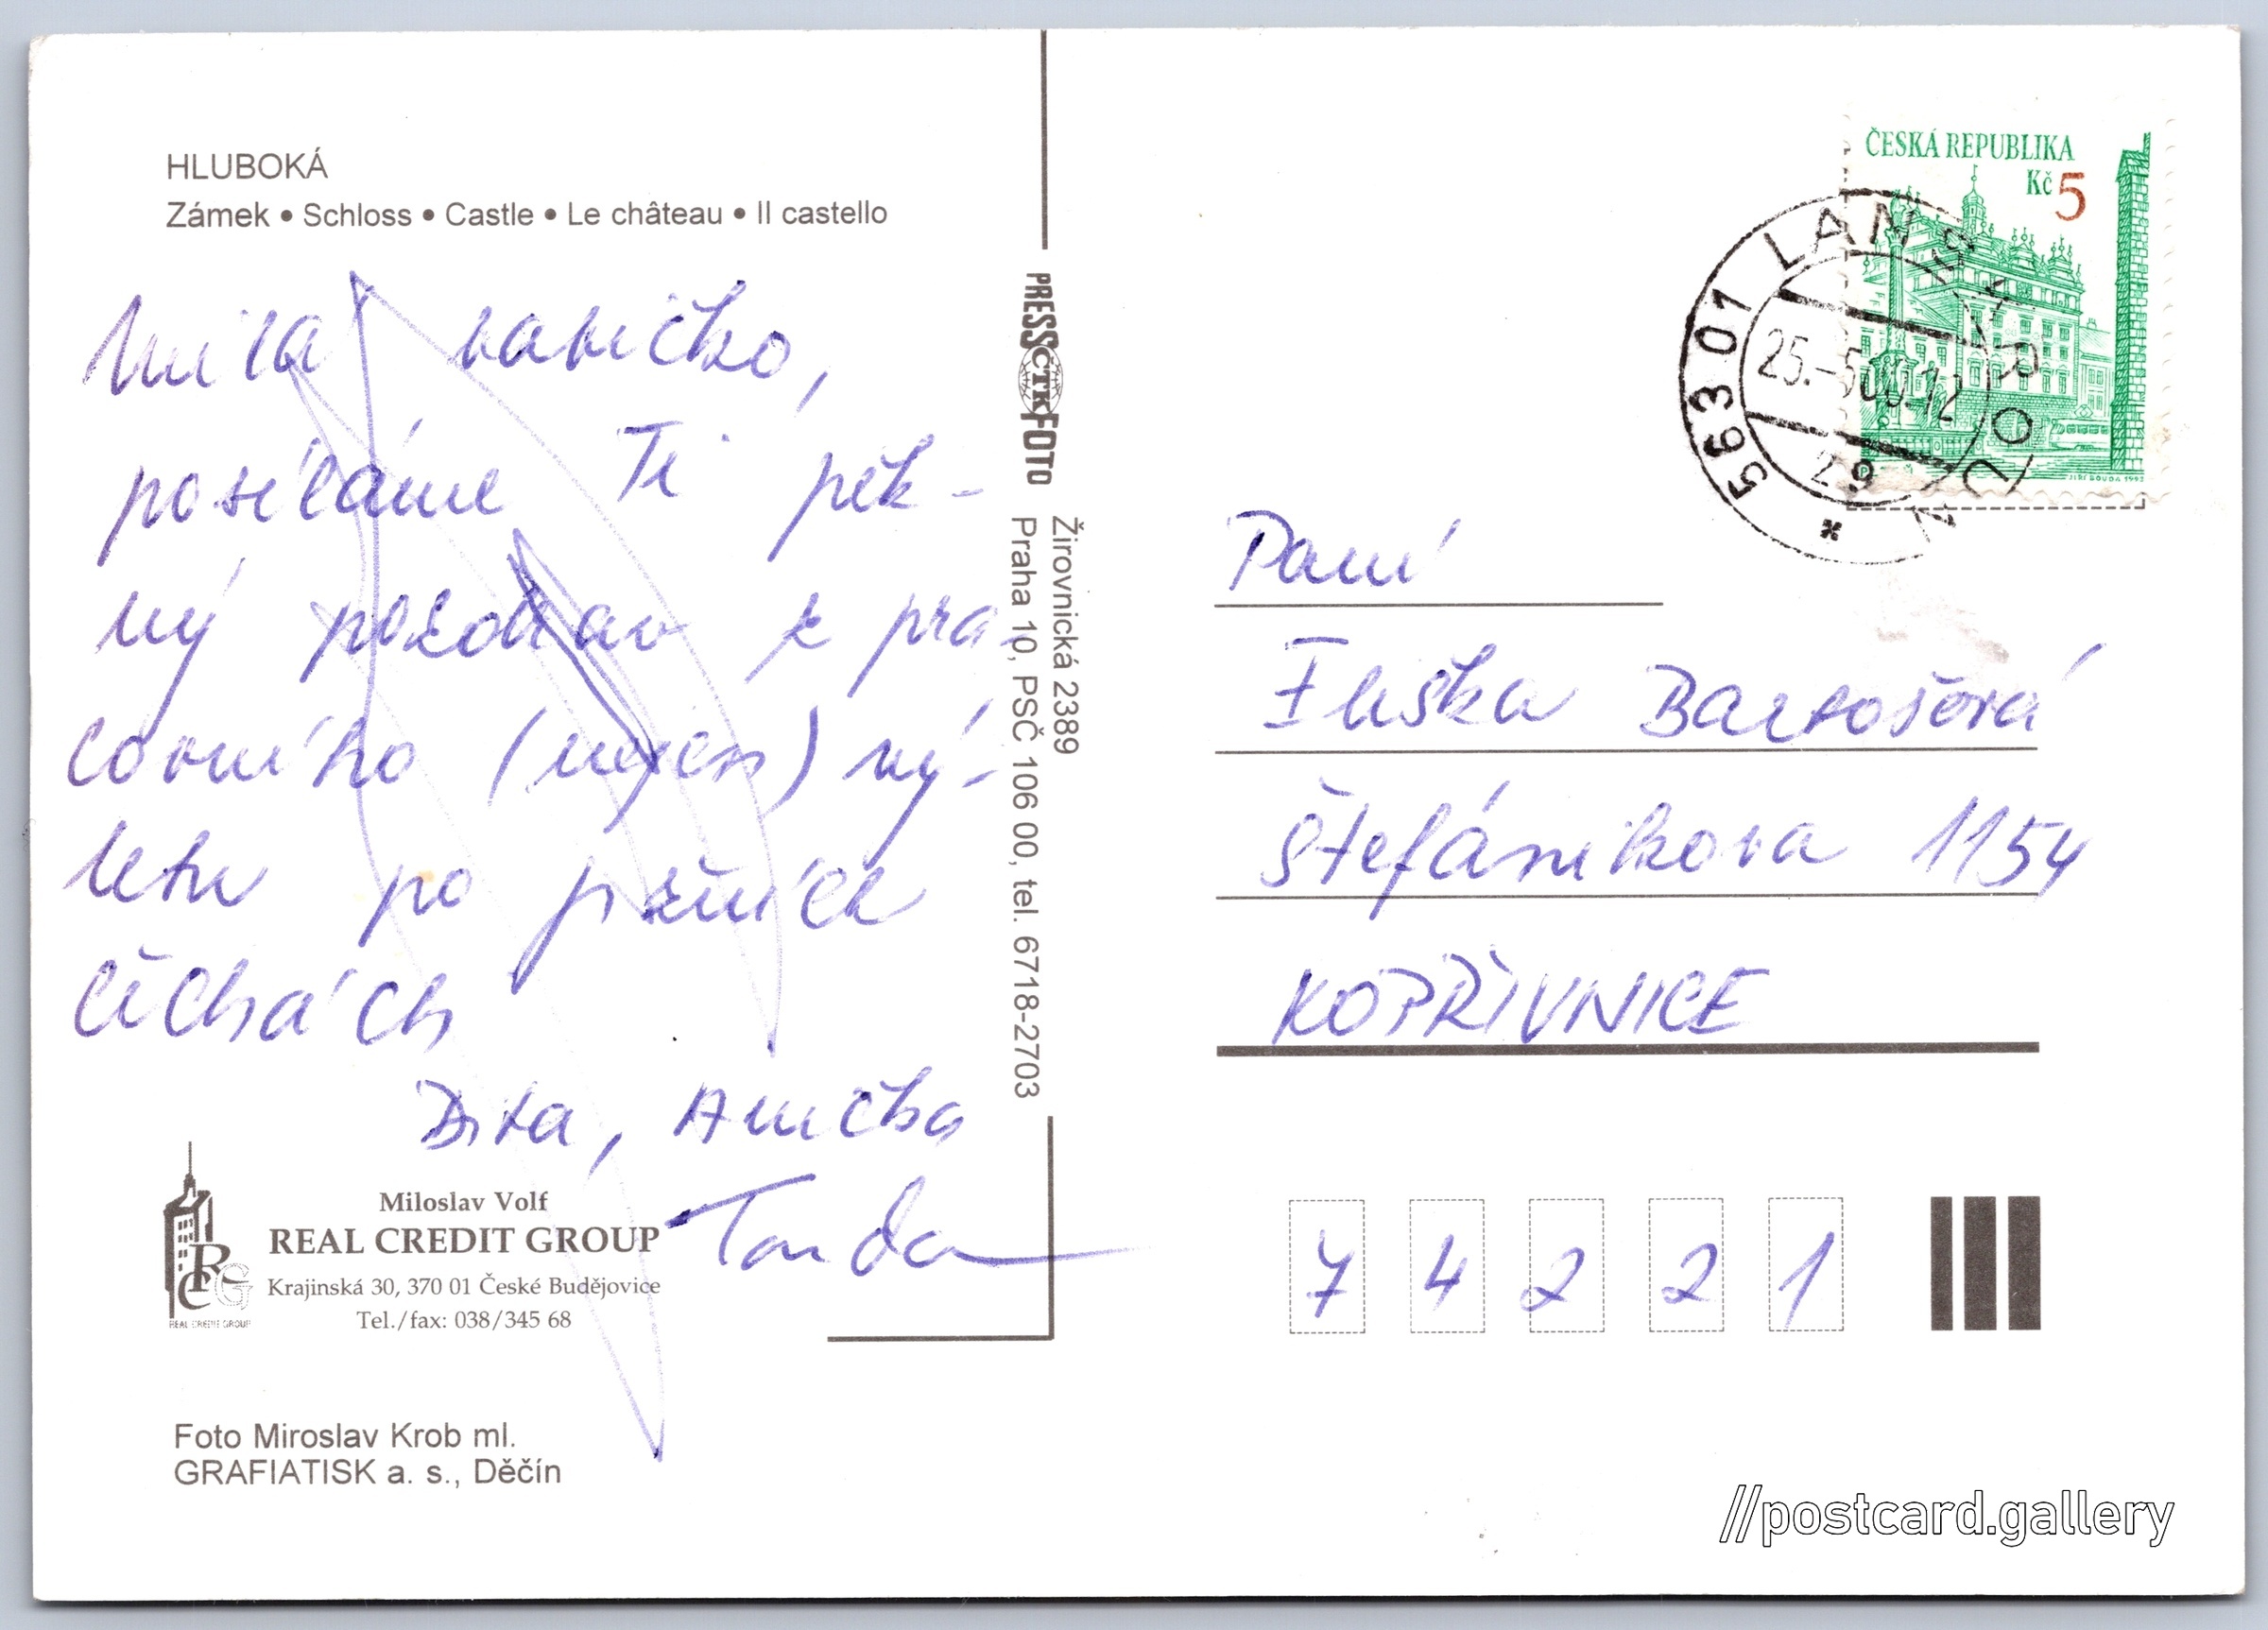 HLUBOKÁ
Zámek • Schloss • Castle • Le château • Il castello
Milá babičko,
posíláme Ti pěk-
ný pozdrav z pra-
covního (nejen) vý-
letu po jižních
Čechách
Dita, Anička
Tonda
Miloslav Volf
REAL CREDIT GROUP
Krajinská 30, 370 01 České Budějovice
Tel./fax: 038/345 68
RCG
REAL CREDIT GROUP
Foto Miroslav Krob ml.
GRAFIATISK a. s., Děčín
PRESS ČTK FOTO
Žirovnická 2389
Praha 10, PSČ 106 00, tel. 6718-2703
ČESKÁ REPUBLIKA
Kč 5
JIŘÍ BOUDA 1993
563 01 LANŠKROUN 1
25.-5.00-12
29
*
Paní
Eliška Bartošová
Štefánikova 1154
KOPŘIVNICE
7 4 2 2 1
//postcard.gallery